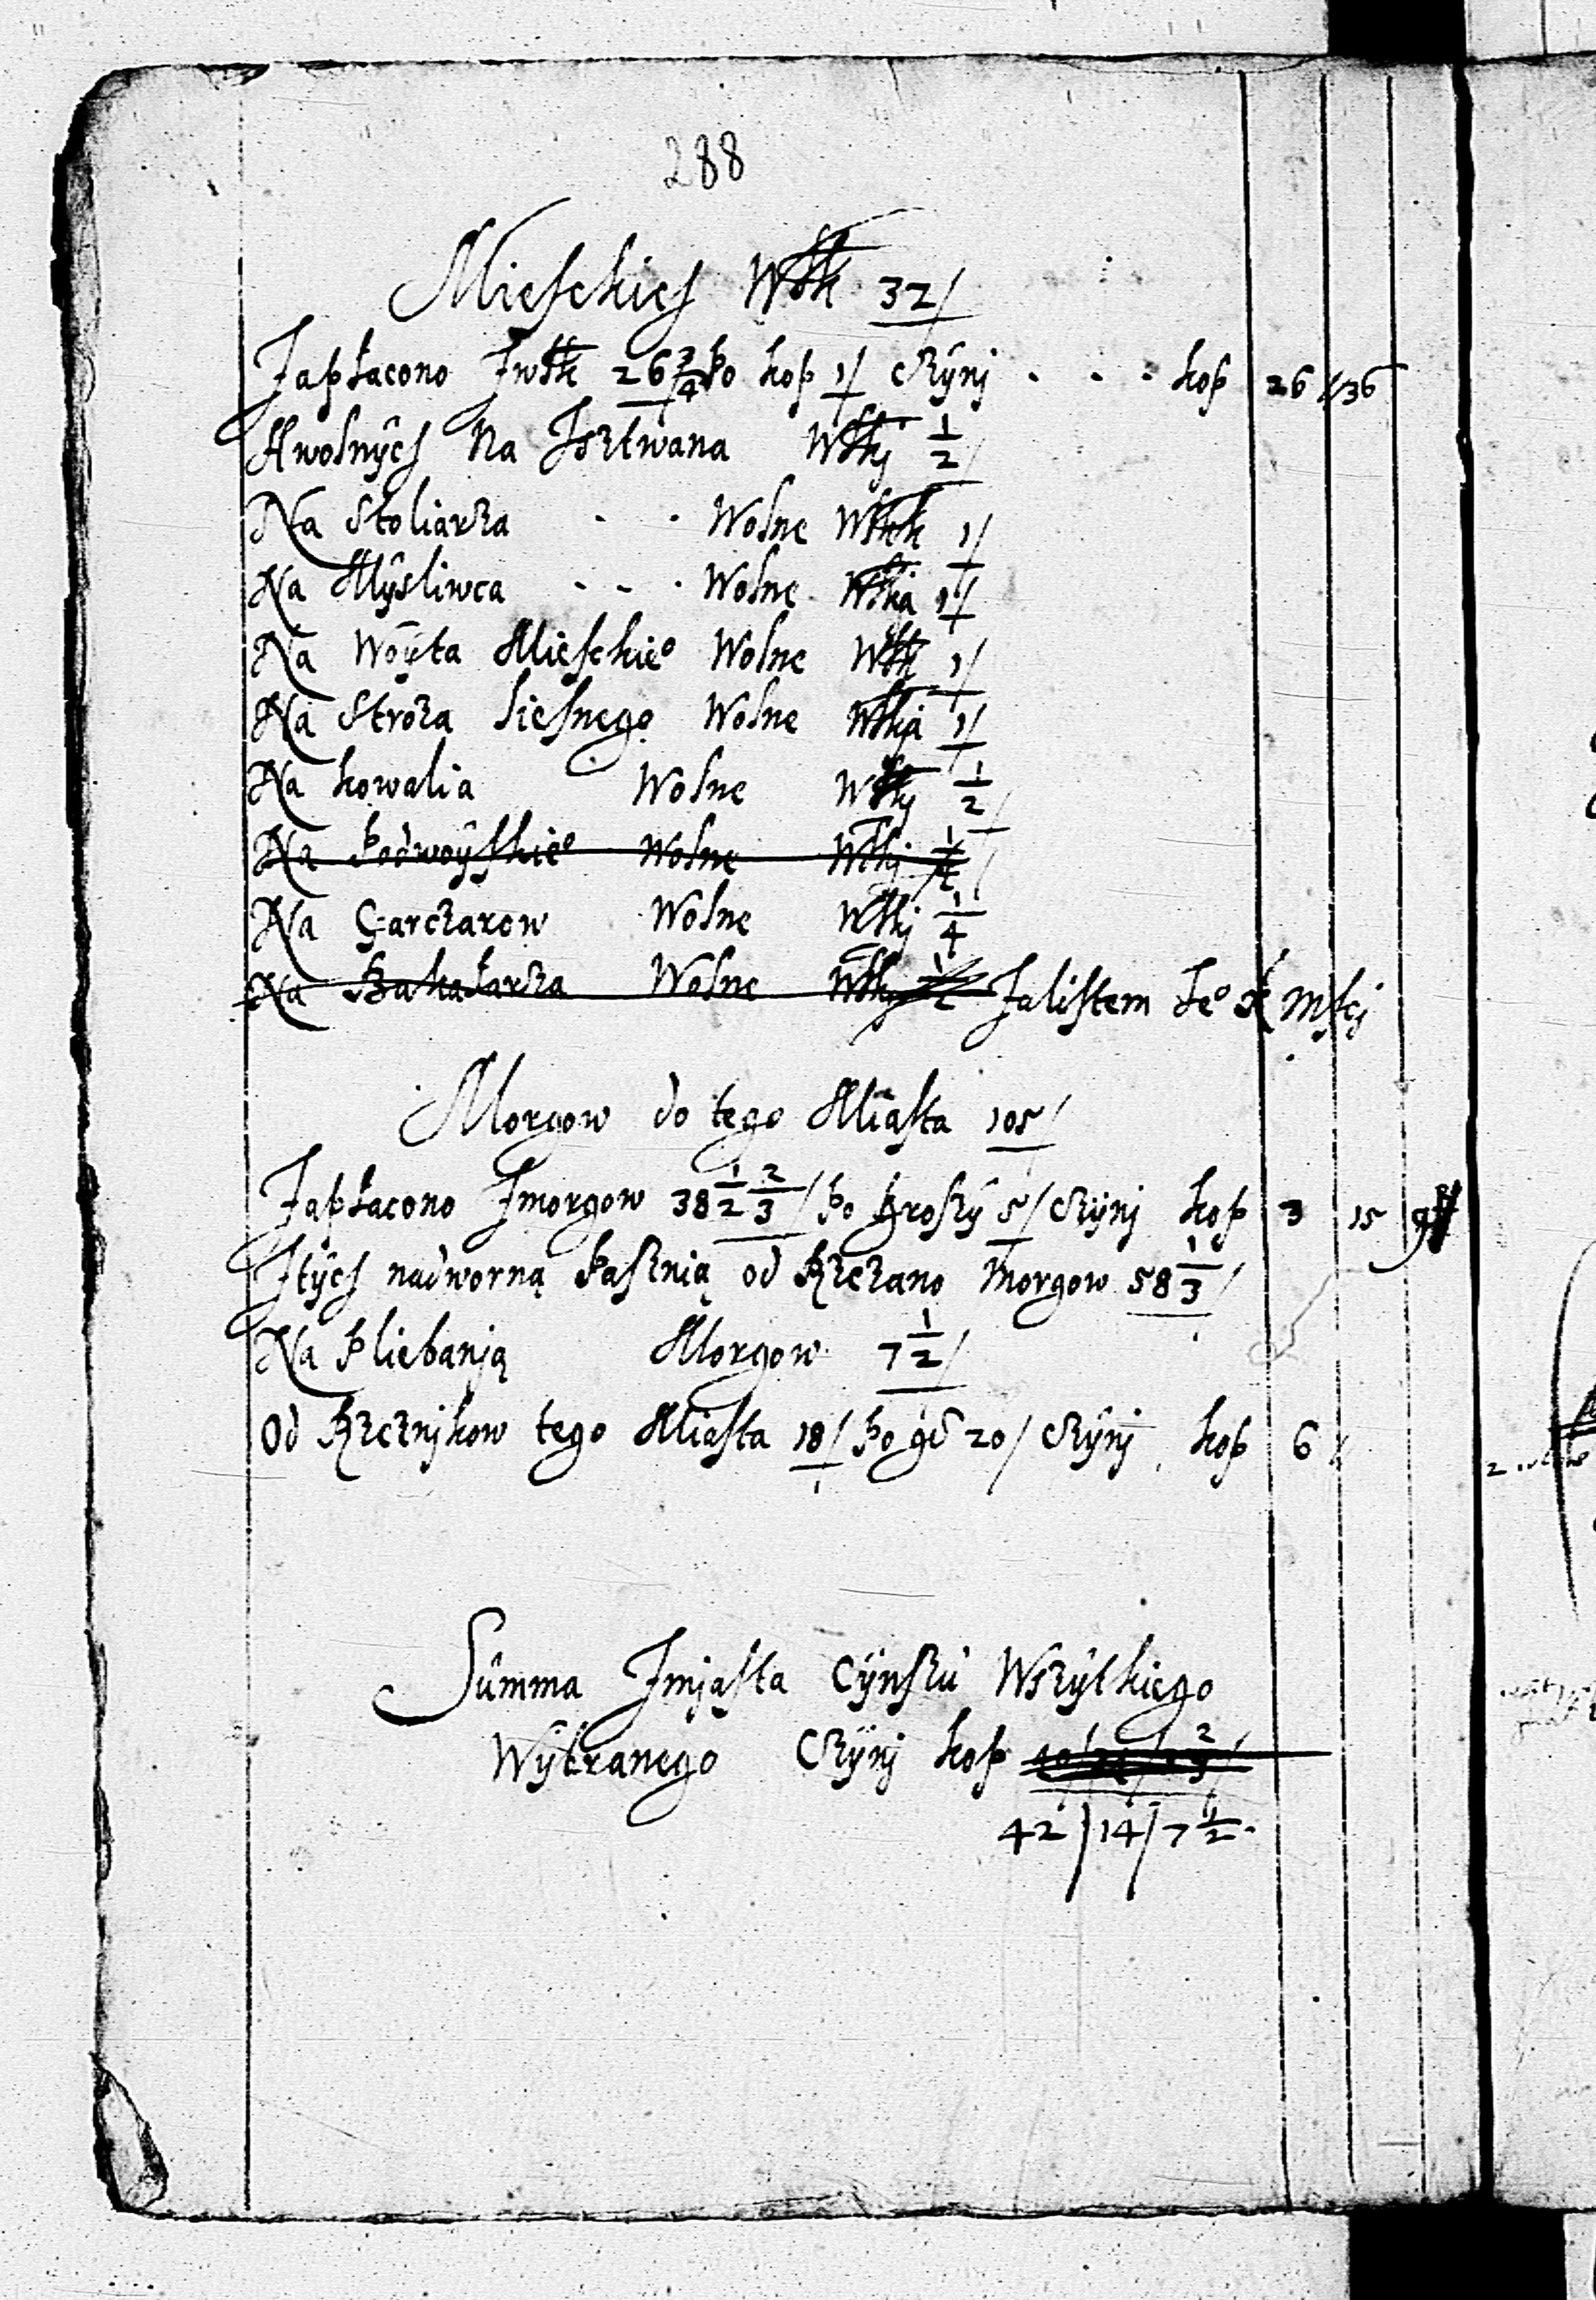 288
Mieskich Włok 32/
Zapłacono Zwłok 26 3/4 Po kop 1/ Czÿnj . . . kop 26 // 36
A wolnÿch Na Isztwana Włokj 1/2
Na Stoliarza . . Wolne Włok 1/
Na Mÿsliwca . . . Wolne Włoka 1/
Na Woÿta Mieskieo Wolne Włok 1/
Na Stroza liesnego Wolne Włoka 1/
Na kowalia Wolne Włokj 1/2
Na Podwoÿskieo Wolne Włokj
Na Garczarow Wolne Włokj 1/4
Na Bakałarza Wolne Włokj Zalistem Jeo K Mscj
Morgow do tego Miasta 105/
Zapłacono Zmorgow 38 1/2 2/3 / Po Groszÿ 5/ Czÿnj kop 3 15
Ztÿch nadworną Pasznią od Rzezano Morgow 58 1/3 /
Na Pliebanją Morgow 7 1/2 /
Od Rzeznjkow tego Miasta 18/ Po gr 20/ Czÿnj kop 6 /
Summa Zmjasta Cÿnszu Wszÿtkiego
Wÿbranego Czÿnj kop
42 / 14 / 7 1/2 .